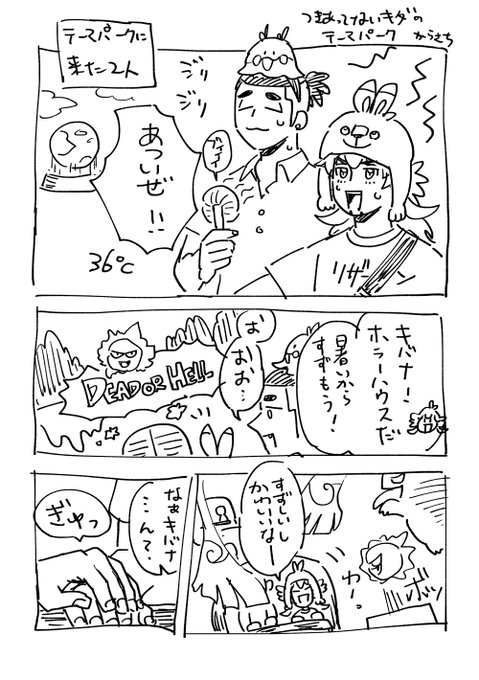 つきあってないキダの
テーマパーク からさち
テーマパークに
来た2人
ジリ
ジリ
ブィィ
あついぜ!!
36℃
リザー
キバナ!
ホラーハウスだ
暑いから
すずもう!
お
おお…
DEAD OR HELL
すずしいし
かわいいなー
わー
ボッ
なぁキバナ
…ん?
ぎゅっ